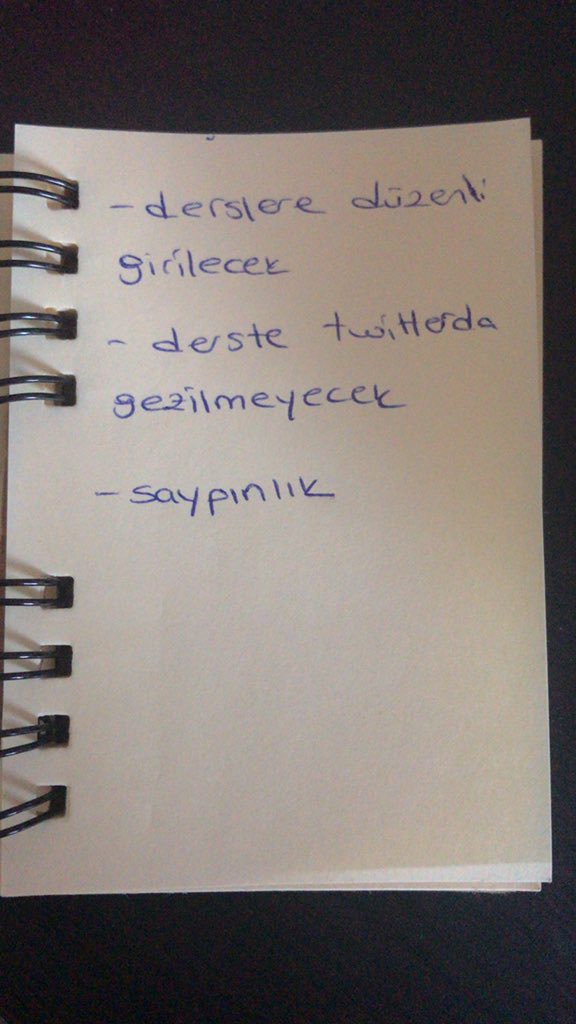 - derslere düzenli
girilecek
- derste twitterda
gezilmeyecek
- saypınlık